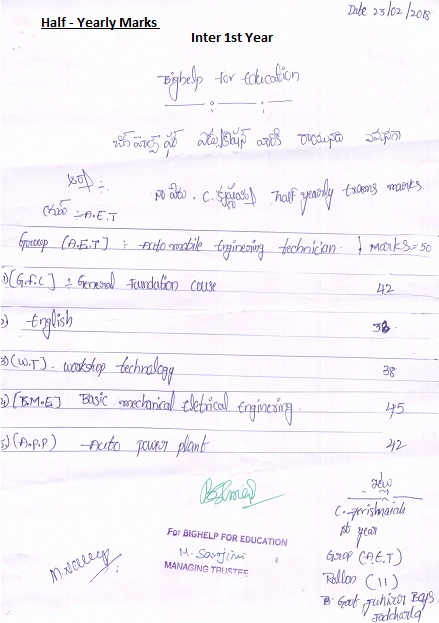 Date 23/02/2018
Half - Yearly Marks
Inter 1st Year
Bighelp for Education
బిగ్ హెల్ప్ ఫర్ ఎడ్యుకేషన్ వారికి రాయునది ఏమనగా
నా పేరు . C. half yearly exams marks.
గ్రూప్ :- A.E.T
Group (A.E.T) :- Auto mobile Engineering technician. Marks = 50
1) (G.F.C) :- General Foundation couse 42
2) English 38
3) (W.T) . workshop technology 38
4) (B.M.E) Basic mechanical eletrical Enginering. 45
5) (A.P.P) Auto power plant 42
ఇట్లు
1st year
Group (A.E.T)
Rollno (11)
B. Govt junior Boys
Jadcharla
For BIGHELP FOR EDUCATION
M. Sarojini
MANAGING TRUSTEE